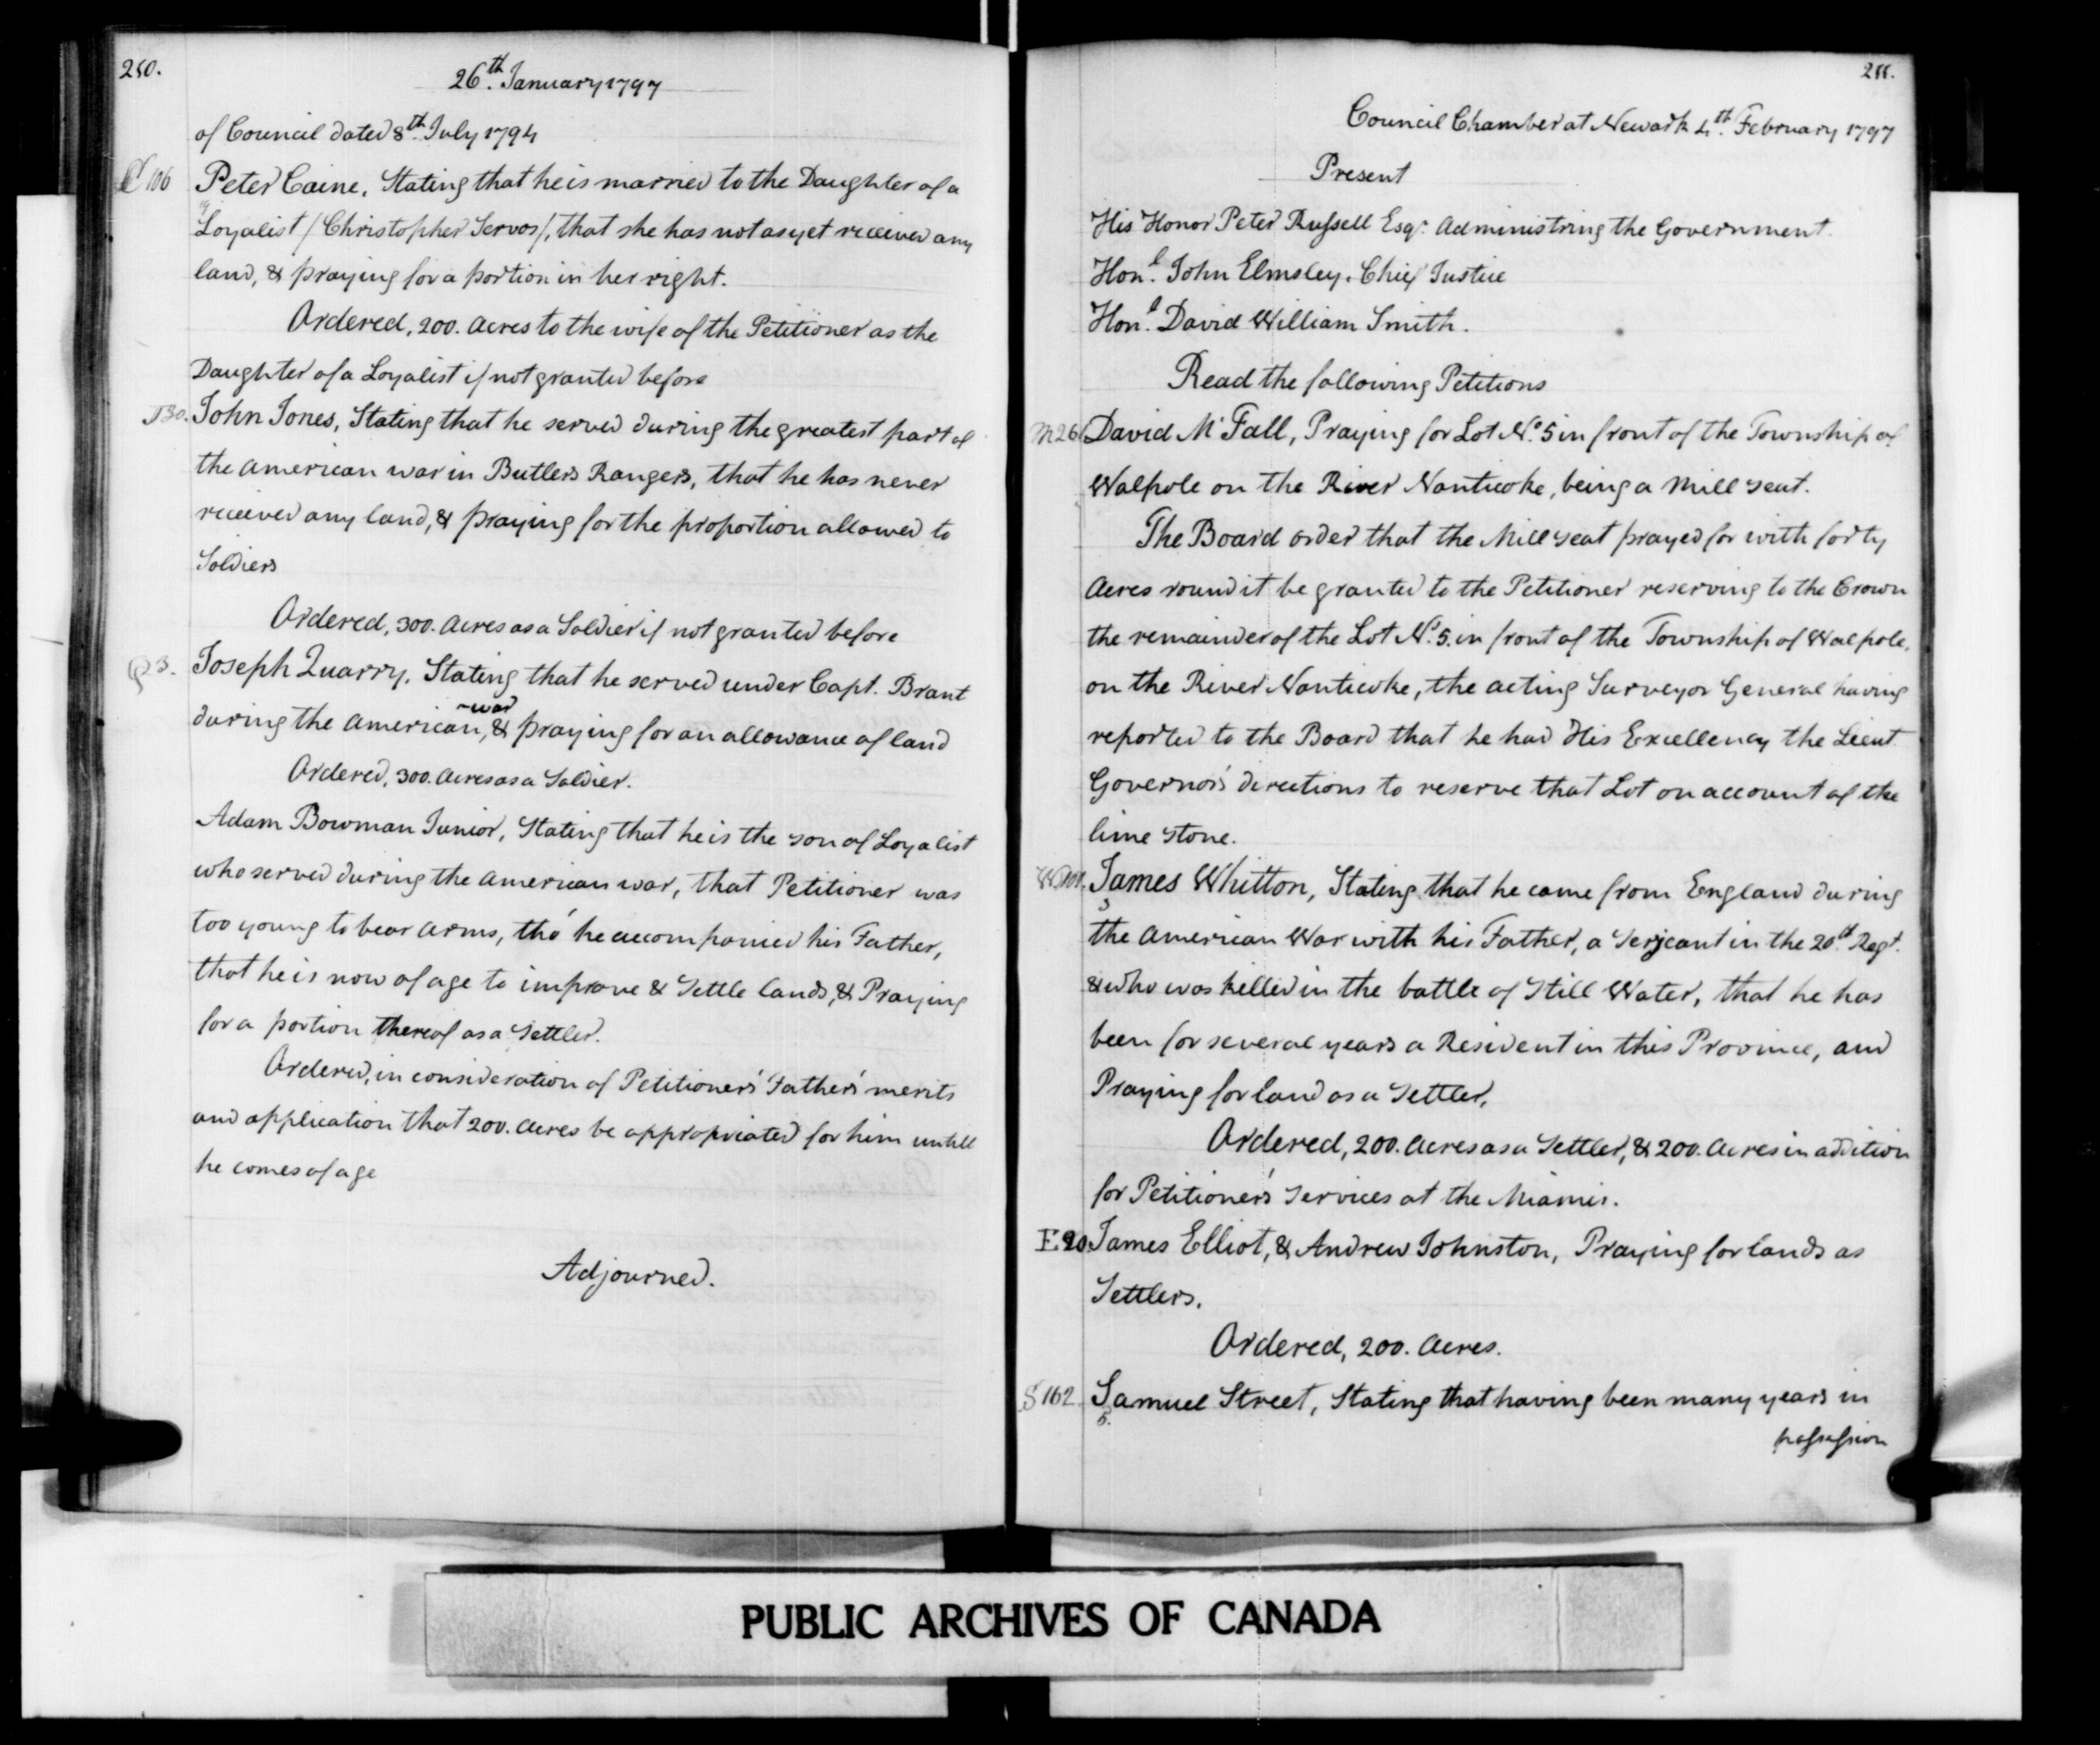 250.
26th. January 1797
of Council dated 8th. July 1794
C 106 Peter Caine, Stating that he is married to the Daughter of a
Loyalist /Christopher Servos/, that she has not as yet received any
land, & praying for a portion in her right.
Ordered, 200. Acres to the wife of the Petitioner as the
Daughter of a Loyalist if not granted before
J 30. John Jones, Stating that he served during the greatest part of
the American war in Butlers Rangers, that he has never
received any land, & praying for the proportion allowed to
Soldiers
Ordered, 300. Acres as a Soldier if not granted before
Q 3. Joseph Quarry, Stating that he served under Capt. Brant
during the American war, & praying for an allowance of land
Ordered, 300. Acres as a Soldier.
Adam Bowman Junior, Stating that he is the son of Loyalist
who served during the American war, that Petitioner was
too young to bear arms, tho' he accompanied his Father,
that he is now of age to improve & Settle lands, & Praying
for a portion thereof as a Settler.
Ordered, in consideration of Petitioner's Father's merits
and application that 200. Acres be appropriated for him untill
he comes of age
Adjourned.
251.
Council Chamber at Newark 4th. February 1797
Present
His Honor Peter Russell Esqr. Administring the Government.
Honl. John Elmsley, Chief Justice
Honl. David William Smith.
Read the following Petitions
M 26 David McFall, Praying for Lot No. 5 in front of the Township of
Walpole on the River Nanticoke, being a Mill seat.
The Board order that the Mill seat prayed for with forty
Acres round it be granted to the Petitioner reserving to the Crown
the remainder of the Lot No. 5. in front of the Township of Walpole,
on the River Nanticoke, the acting Surveyor General having
reported to the Board that he had His Excellency the Lieut.
Governor's directions to reserve that Lot on account of the
lime stone.
James Whitton, Stating that he came from England during
the American War with his Father, a Serjeant in the 20th. Regt.
& who was killed in the battle of Still Water, that he has
been for several years a Resident in this Province, and
Praying for land as a Settler,
Ordered, 200. Acres as a Settler, & 200. Acres in addition
for Petitioner's Services at the Miamis.
E 20. James Elliot, & Andrew Johnston, Praying for lands as
Settlers.
Ordered, 200. Acres.
S 162. Samuel Street, Stating that having been many years in
possession
PUBLIC ARCHIVES OF CANADA